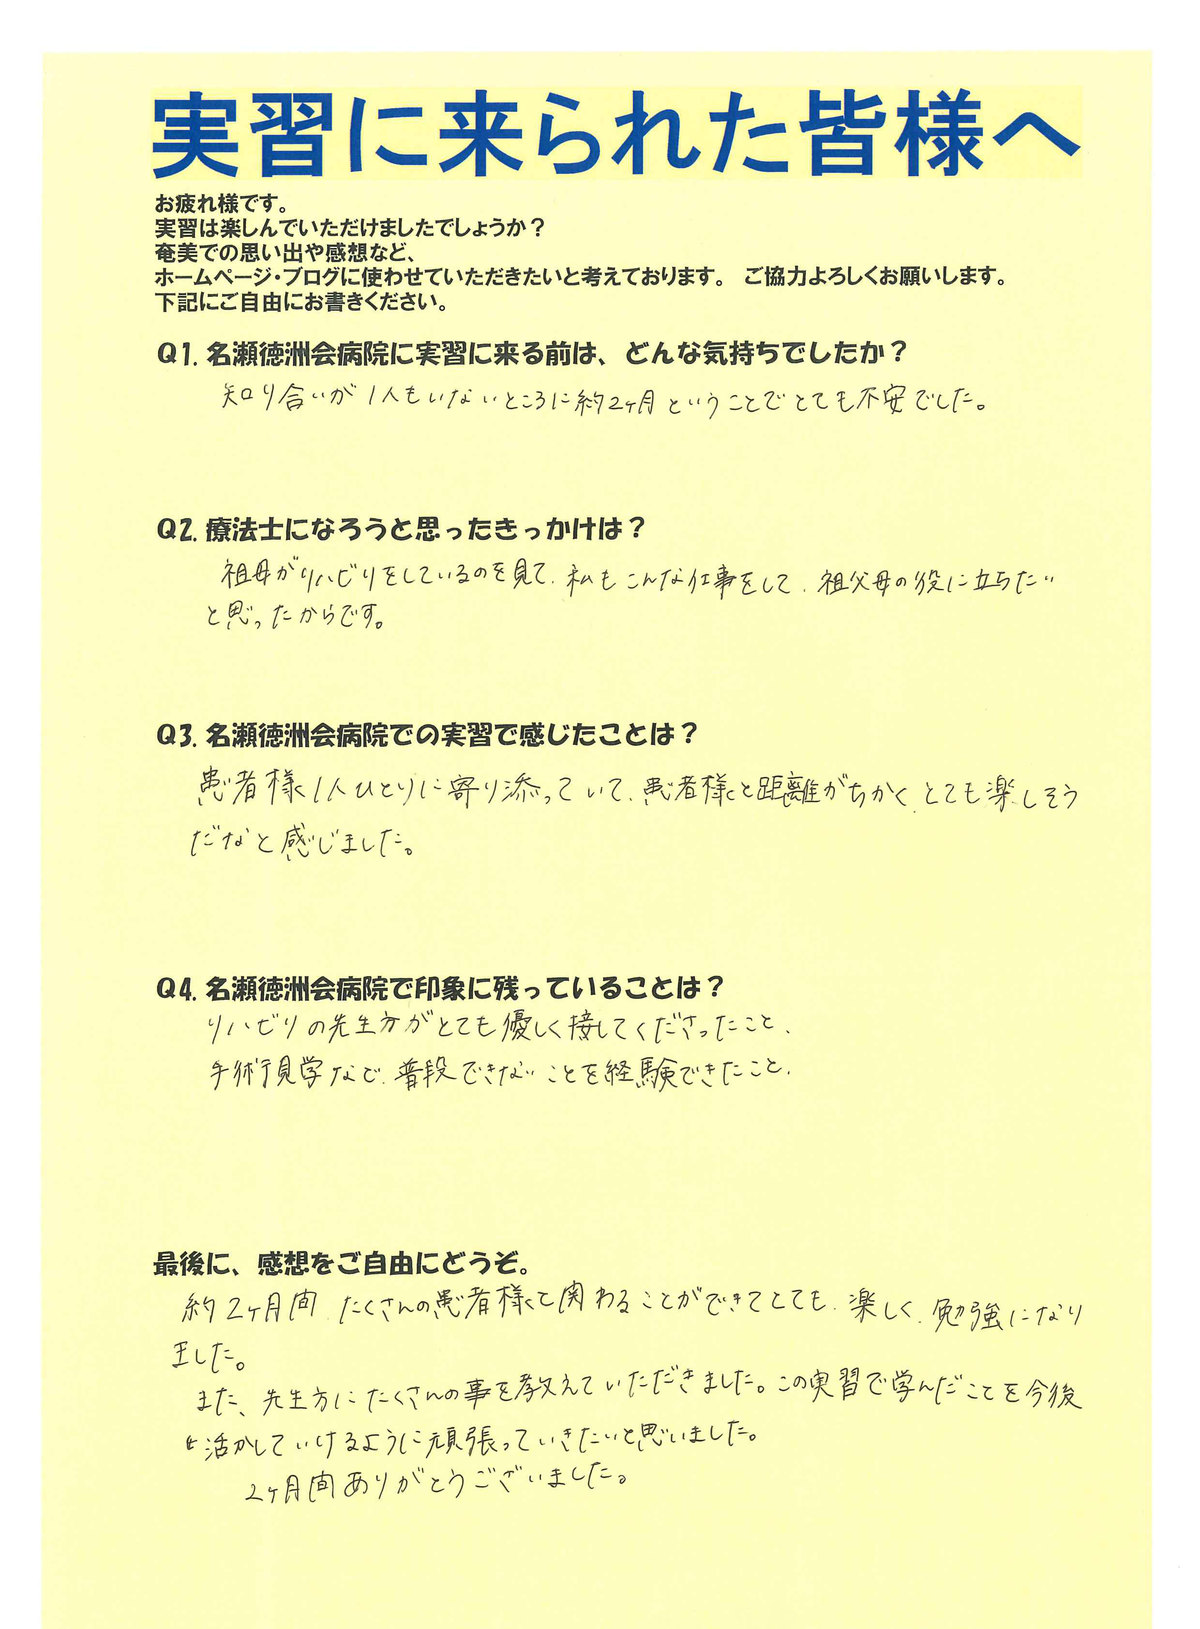 実習に来られた皆様へ
お疲れ様です。
実習は楽しんでいただけましたでしょうか？
奄美での思い出や感想など、
ホームページ・ブログに使わせていただきたいと考えております。　ご協力よろしくお願いします。
下記にご自由にお書きください。
Q1. 名瀬徳洲会病院に実習に来る前は、どんな気持ちでしたか？
知り合いが1人もいないところに約2ヶ月ということでとても不安でした。
Q2. 療法士になろうと思ったきっかけは？
祖母がリハビリをしているのを見て、私もこんな仕事をして、祖父母の役に立ちたい
と思ったからです。
Q3. 名瀬徳洲会病院での実習で感じたことは？
患者様1人ひとりに寄り添っていて、患者様と距離がちかく、とても楽しそう
だなと感じました。
Q4. 名瀬徳洲会病院で印象に残っていることは？
リハビリの先生方がとても優しく接してくださったこと、
手術見学など、普段できないことを経験できたこと、
最後に、感想をご自由にどうぞ。
約2ヶ月間、たくさんの患者様と関わることができてとても、楽しく、勉強になり
ました。
また、先生方にたくさんの事を教えていただきました。この実習で学んだことを今後
に活かしていけるように頑張っていきたいと思いました。
2ヶ月間ありがとうございました。